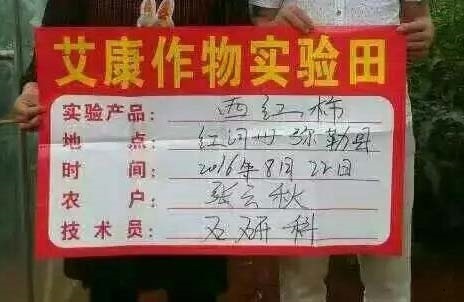 艾康作物实验田
实验产品：西红柿
地点：红河州弥勒县
时间：2016年8月22日
农户：张云秋
技术员：石研科